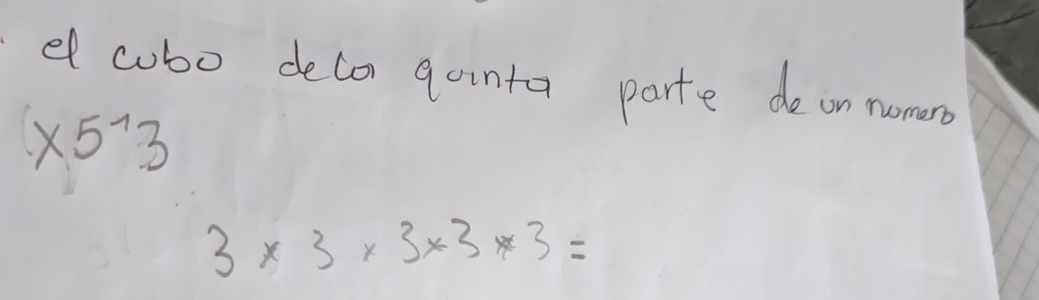 el cubo de la quinta parte de un numero
(x5^3
3 x 3 x 3 x 3 x 3 =